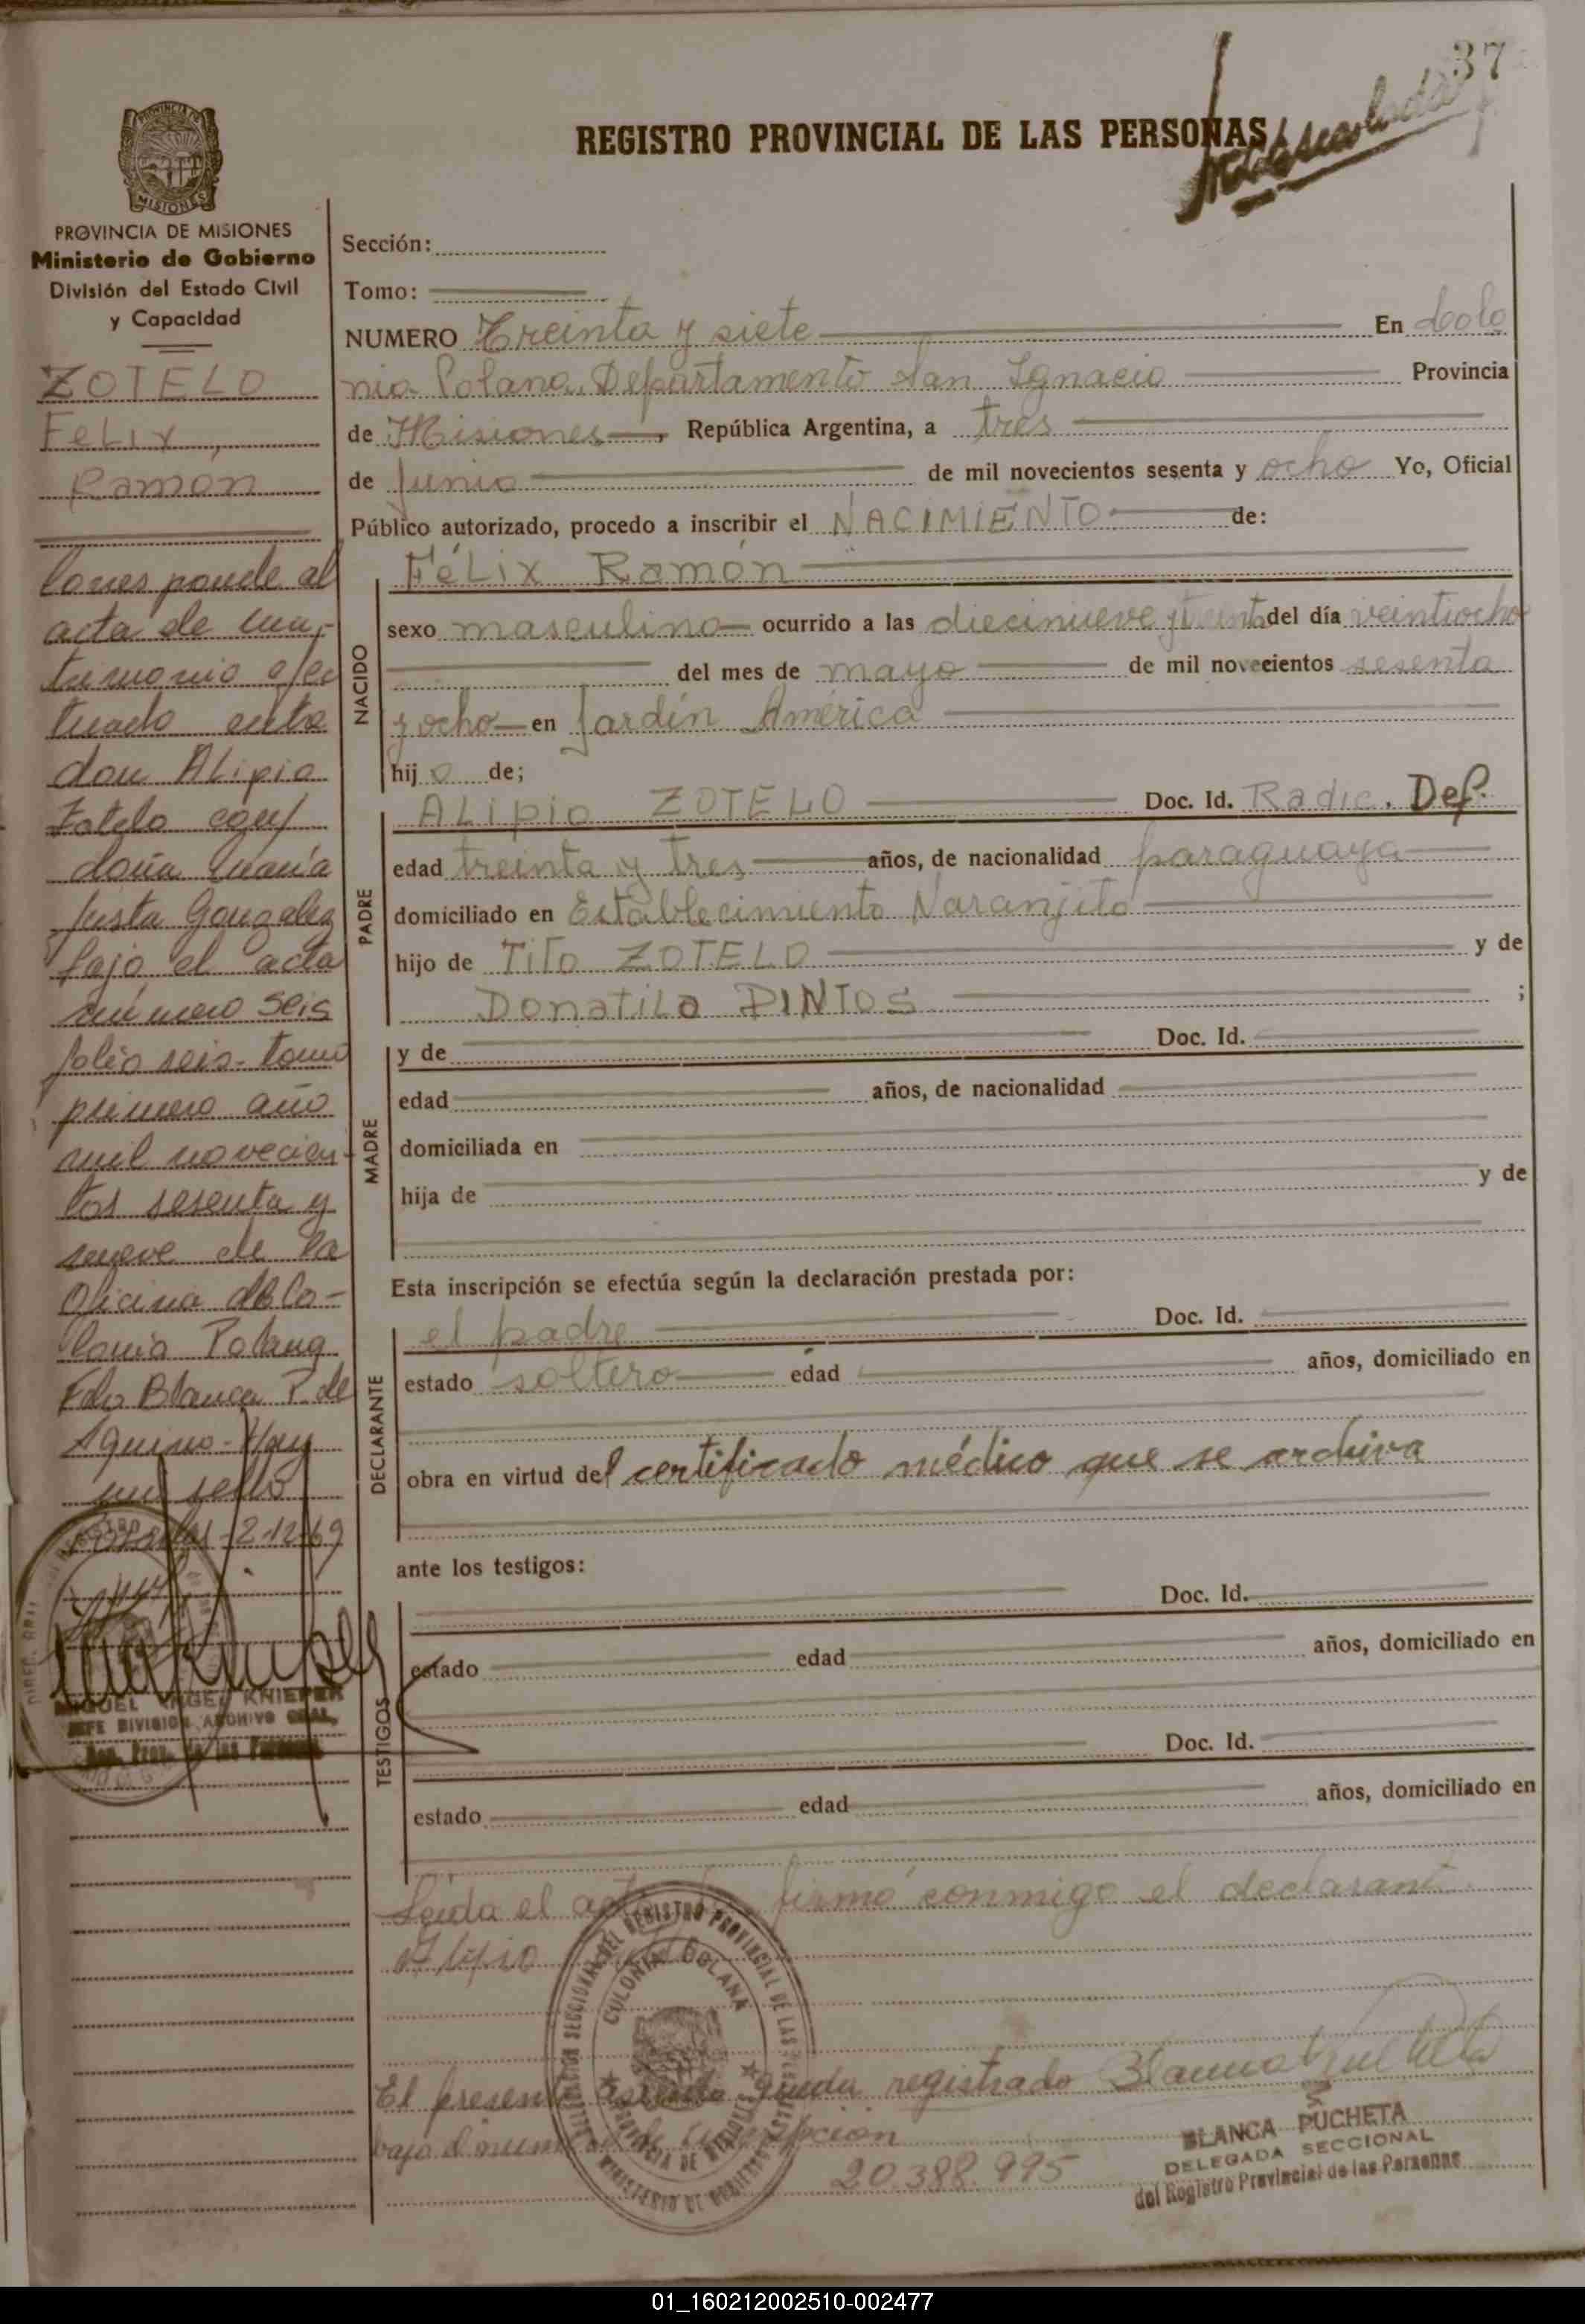 37
REGISTRO PROVINCIAL DE LAS PERSONAS
PROVINCIA DE
MISIONES
PROVINCIA DE MISIONES
Ministerio de Gobierno
División del Estado Civil
y Capacidad
ZOTELO
FELIX
Ramón
Corresponde al
acta de ma-
trimonio efec
tuado entre
don ALipio
Zotelo con
doña María
Justa Gonzalez
bajo el acta
número seis
folio seis - tomo
primero año
mil novecien-
tos sesenta y
nueve de la
Oficina de Co-
lonia Polana
Fdo Blanca P. de
Aquino - Hay
un sello
Posadas - 2-12-69
MIGUEL ANGEL KNIEPER
JEFE DIVISION ARCHIVO GRAL.
Reg. Prov. de las Personas
Sección:
Tomo:
NUMERO Treinta y siete En Colo
nia Polana, Departamento San Ignacio Provincia
de Misiones, República Argentina, a tres
de Junio de mil novecientos sesenta y ocho Yo, Oficial
Público autorizado, procedo a inscribir el NACIMIENTO de:
NACIDO
Félix Ramón
sexo masculino ocurrido a las diecinueve y treinta del día veintiocho
del mes de mayo de mil novecientos sesenta
y ocho en Jardín América
hijo de;
PADRE
ALipio ZOTELO Doc. Id. Radic. Def.
edad treinta y tres años, de nacionalidad paraguaya
domiciliado en Establecimiento Naranjito
hijo de Tito ZOTELO y de
Donatila PINTOS ;
MADRE
y de Doc. Id.
edad años, de nacionalidad
domiciliada en
hija de y de
Esta inscripción se efectúa según la declaración prestada por:
DECLARANTE
el padre Doc. Id.
estado soltero edad años, domiciliado en
obra en virtud del certificado médico que se archiva
ante los testigos:
TESTIGOS
Doc. Id.
estado edad años, domiciliado en
Doc. Id.
estado edad años, domiciliado en
Leida el acta firmó conmigo el declarante
Alipio
El presente asiento queda registrado
bajo el número de inscripción
20.388.995
COLONIA POLANA
PROVINCIA DE MISIONES
BLANCA PUCHETA
DELEGADA SECCIONAL
del Registro Provincial de las Personas
01_160212002510-002477